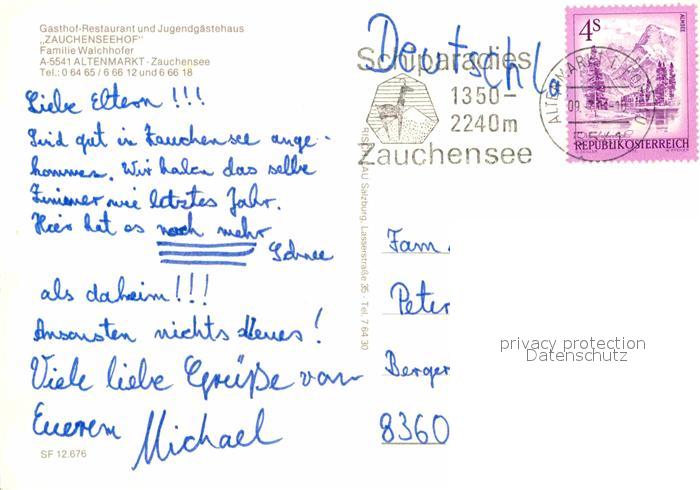 Gasthof-Restaurant und Jugendgästehaus
„ZAUCHENSEEHOF"
Familie Walchhofer
A-5541 ALTENMARKT - Zauchensee
Tel.: 0 64 65 / 6 66 12 und 6 66 18
Liebe Eltern !!!
Sind gut in Zauchensee ange-
kommen. Wir haben das selbe
Zimmer wie letztes Jahr.
Hier hat es noch mehr
Schnee
als daheim!!!
Ansonsten nichts Neues!
Viele liebe Grüße von
Eurem Michael
SF 12.676
Deutschla
Schiparadies
1350-
2240m
Zauchensee
ALTENMARKT
4S
ALMSEE
REPUBLIK ÖSTERREICH
AU Salzburg, Lasserstraße 35 - Tel. 7 64 30
Fam.
Peter
Berger
8360
privacy protection
Datenschutz